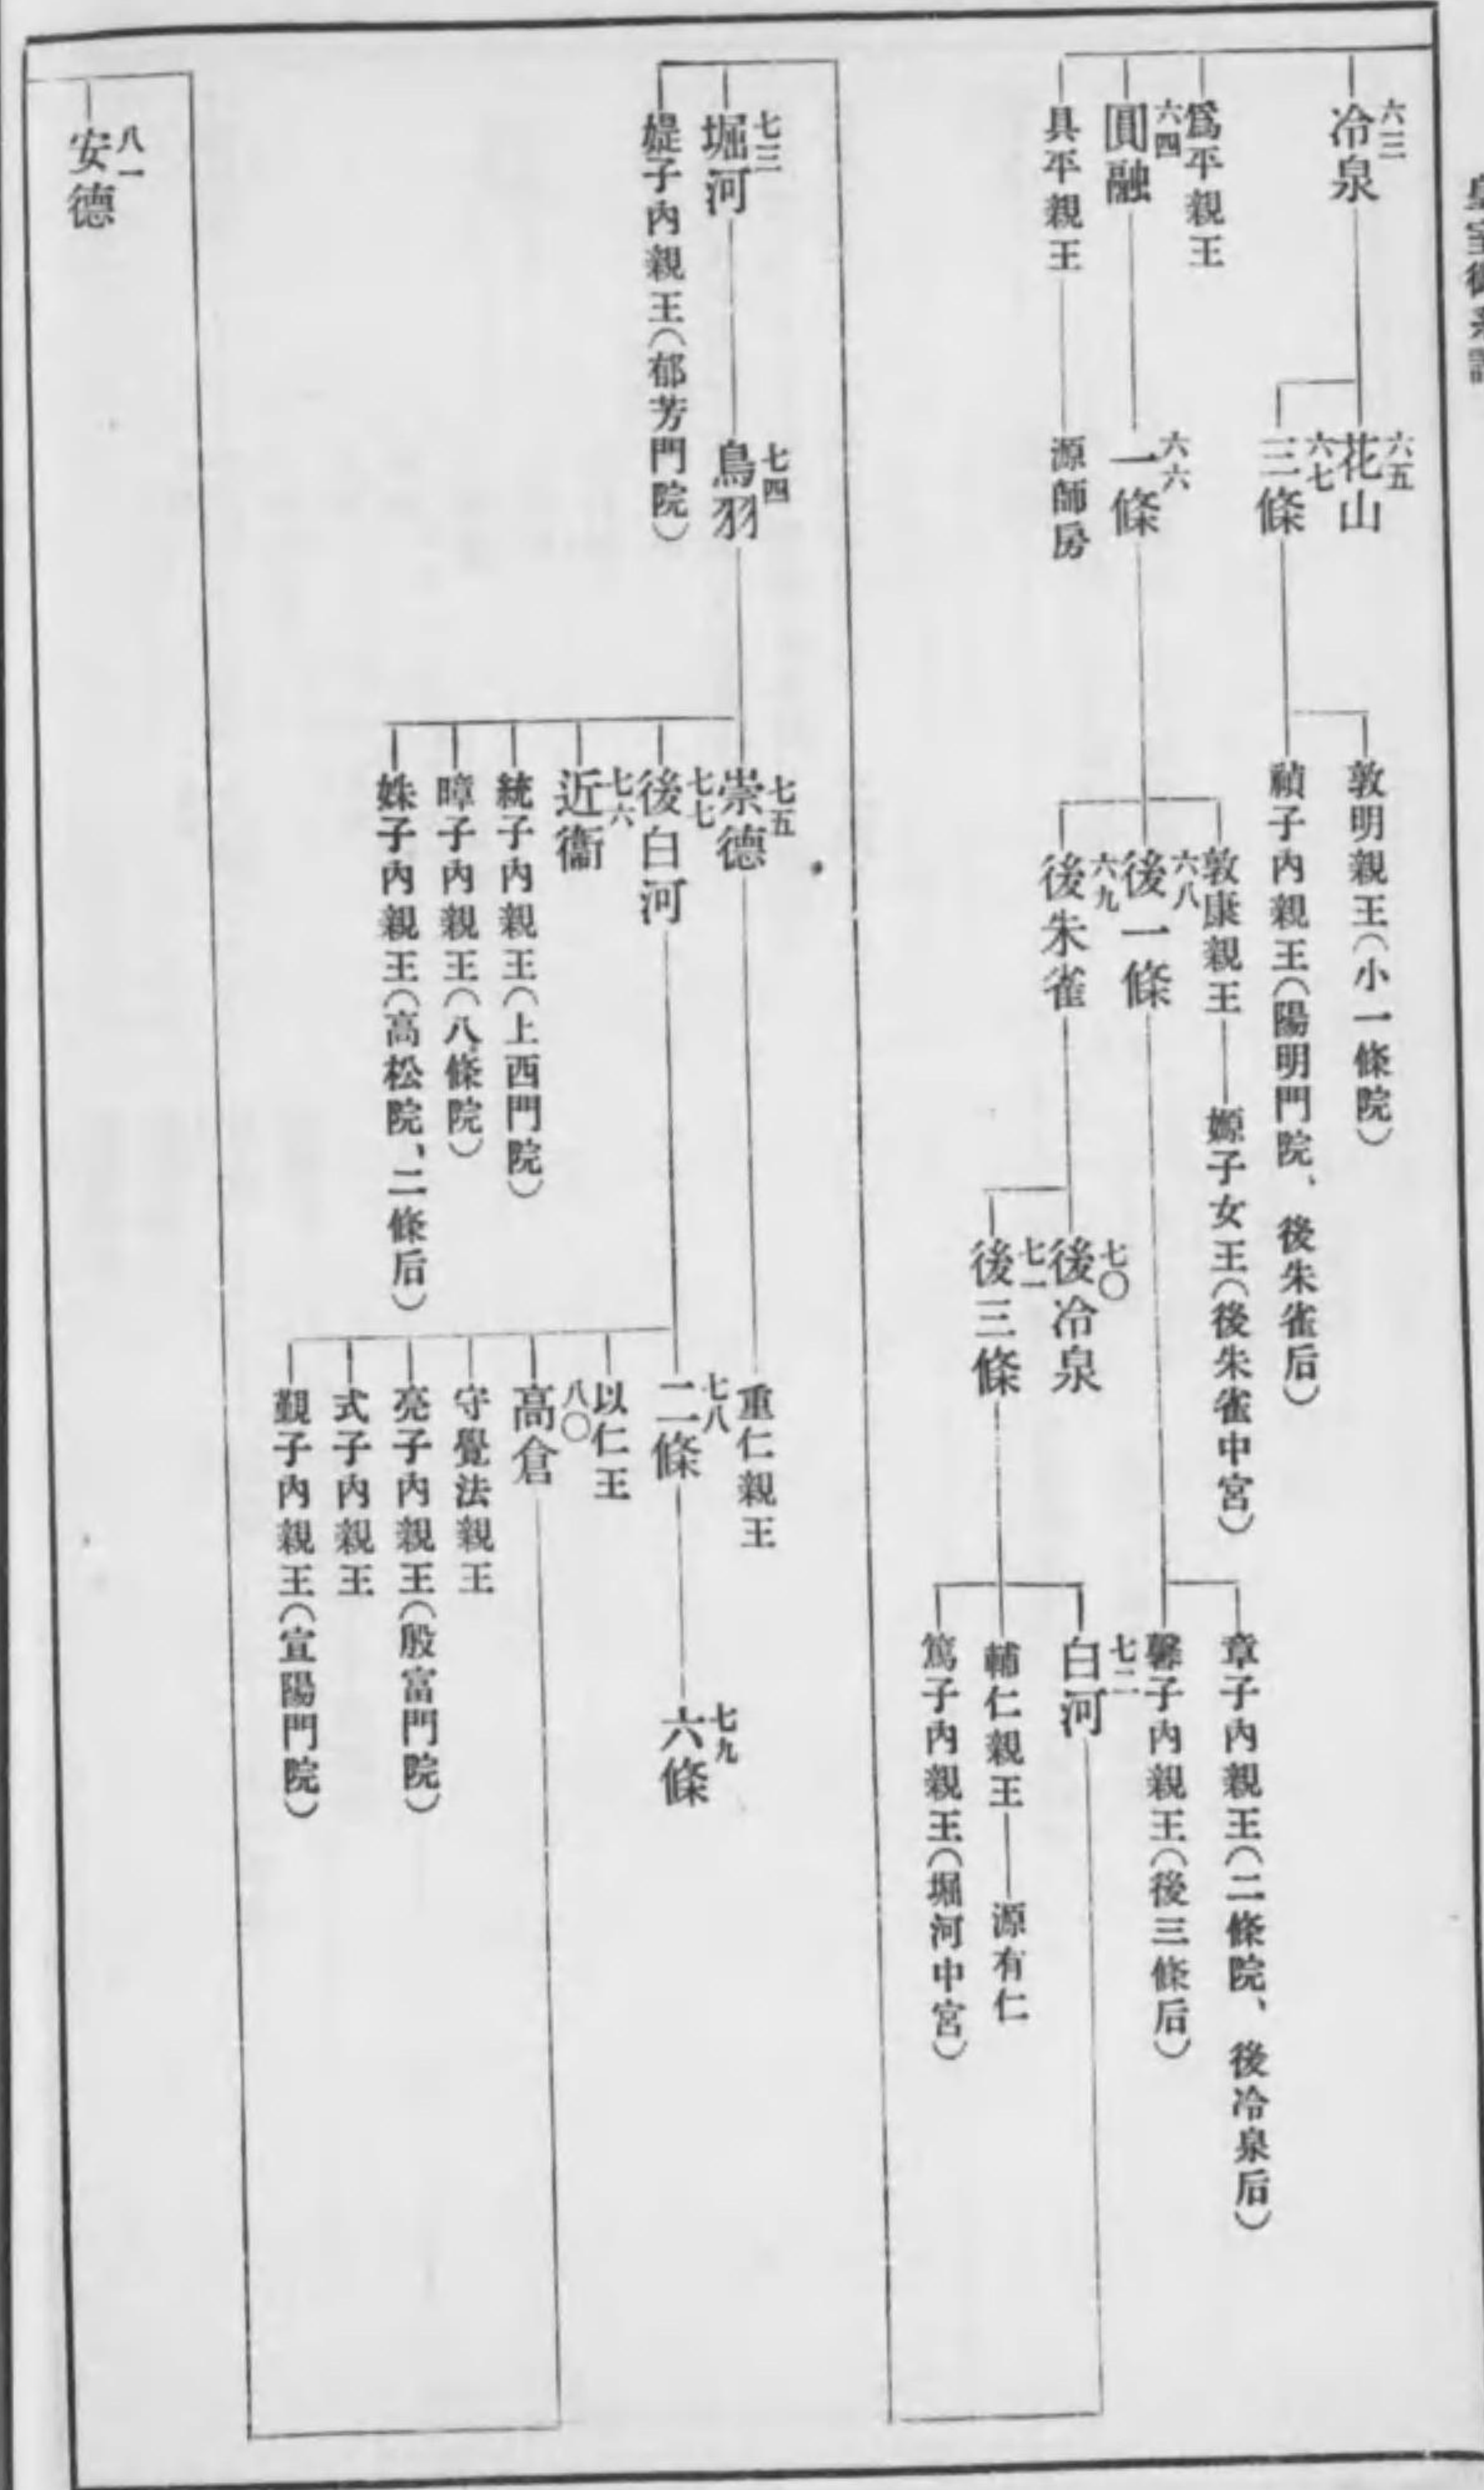 六三
冷泉
六五
花山
六七
三條
敦明親王(小一條院)
禎子內親王(陽明門院、後朱雀后)
爲平親王
六四
圓融
六六
一條
敦康親王
嫄子女王(後朱雀中宮)
六八
後一條
章子內親王(二條院、後冷泉后)
馨子內親王(後三條后)
六九
後朱雀
七〇
後冷泉
七一
後三條
七二
白河
輔仁親王
源有仁
篤子內親王(堀河中宮)
具平親王
源師房
七三
堀河
七四
鳥羽
七五
崇德
重仁親王
七七
後白河
七八
二條
七九
六條
以仁王
八〇
高倉
守覺法親王
亮子內親王(殷富門院)
式子內親王
覲子內親王(宣陽門院)
七六
近衞
統子內親王(上西門院)
暲子內親王(八條院)
姝子內親王(高松院、二條后)
媞子內親王(郁芳門院)
八一
安德